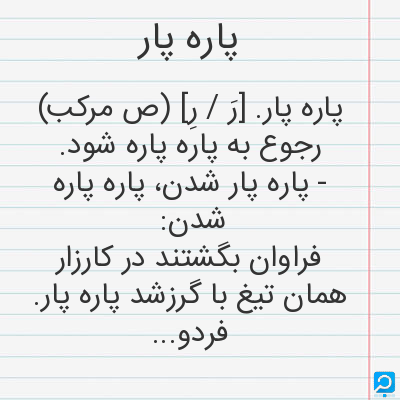 پاره پار
پاره پار. [رَ / رِ] (ص مرکب)
رجوع به پاره پاره شود.
- پاره پار شدن، پاره پاره
شدن:
فراوان بگشتند در کارزار
همان تیغ با گرزشد پاره پار.
فردو...